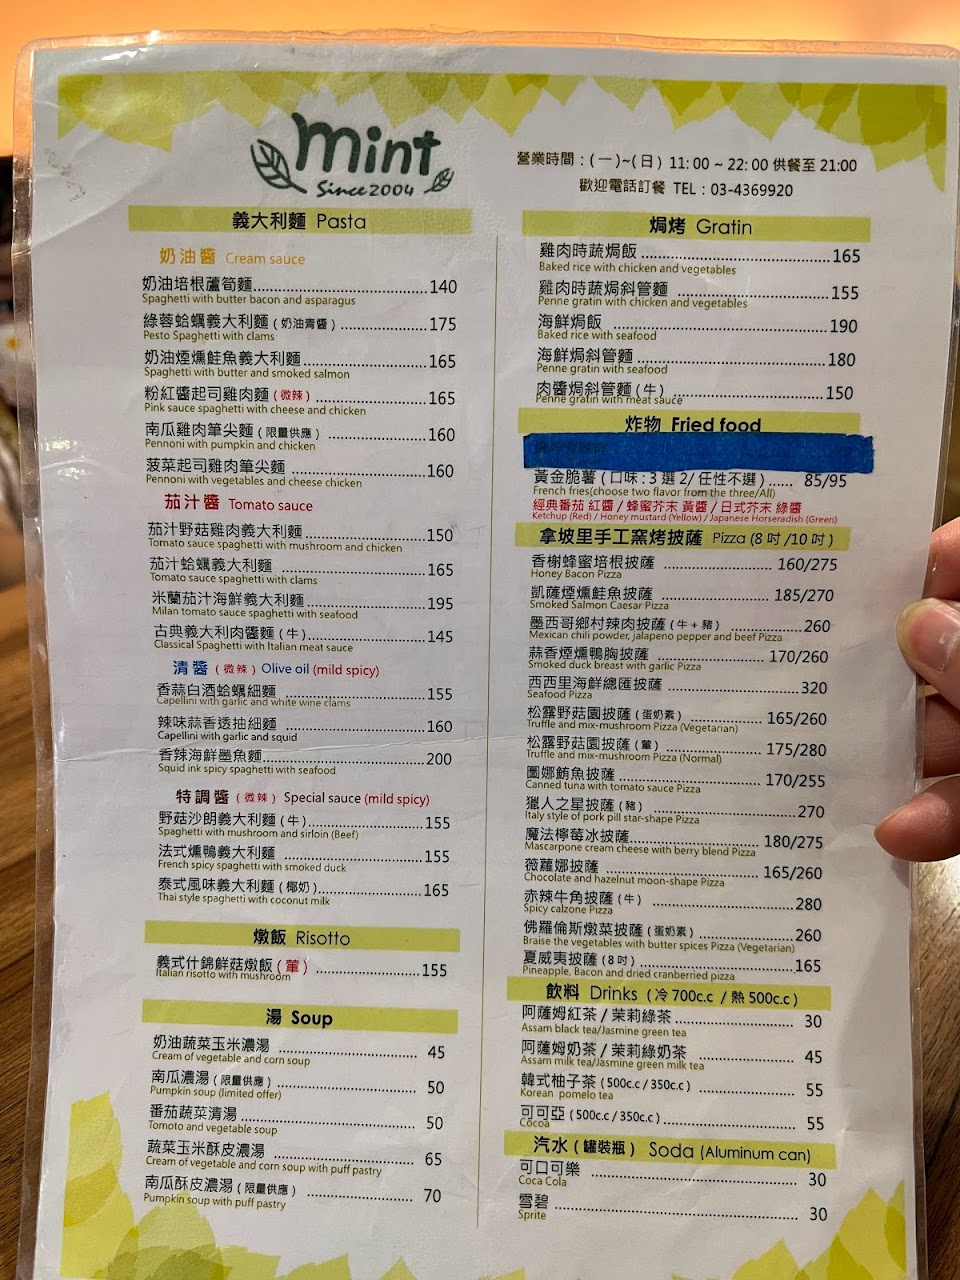 mint
Since 2004
營業時間：(一)~(日) 11:00 ~ 22:00 供餐至 21:00
歡迎電話訂餐 TEL : 03-4369920
義大利麵 Pasta
奶油醬 Cream sauce
奶油培根蘆筍麵 140
Spaghetti with butter bacon and asparagus
綠蓉蛤蠣義大利麵 (奶油青醬) 175
Pesto Spaghetti with clams
奶油煙燻鮭魚義大利麵 165
Spaghetti with butter and smoked salmon
粉紅醬起司雞肉麵 (微辣) 165
Pink sauce spaghetti with cheese and chicken
南瓜雞肉筆尖麵 (限量供應) 160
Pennoni with pumpkin and chicken
菠菜起司雞肉筆尖麵 160
Pennoni with vegetables and cheese chicken
茄汁醬 Tomato sauce
茄汁野菇雞肉義大利麵 150
Tomato sauce spaghetti with mushroom and chicken
茄汁蛤蠣義大利麵 165
Tomato sauce spaghetti with clams
米蘭茄汁海鮮義大利麵 195
Milan tomato sauce spaghetti with seafood
古典義大利肉醬麵 (牛) 145
Classical Spaghetti with Italan meat sauce
清醬 (微辣) Olive oil (mild spicy)
香蒜白酒蛤蠣細麵 155
Capellini with garlic and white wine clams
辣味蒜香透抽細麵 160
Capellini with garlic and squid
香辣海鮮墨魚麵 200
Squid ink spicy spaghetti with seafood
特調醬 (微辣) Special sauce (mild spicy)
野菇沙朗義大利麵 (牛) 155
Spaghetti with mushroom and sirloin (Beef)
法式燻鴨義大利麵 155
French spicy spaghetti with smoked duck
泰式風味義大利麵 (椰奶) 165
Thai style spaghetti with coconut milk
燉飯 Risotto
義式什錦鮮菇燉飯 (葷) 155
Italian risotto with mushroom
湯 Soup
奶油蔬菜玉米濃湯 45
Cream of vegetable and corn soup
南瓜濃湯 (限量供應) 50
Pumpkin soup (limited offer)
番茄蔬菜清湯 50
Tomoto and vegetable soup
蔬菜玉米酥皮濃湯 65
Cream of vegetable and corn soup with puff pastry
南瓜酥皮濃湯 (限量供應) 70
Pumpkin soup with puff pastry
焗烤 Gratin
雞肉時蔬焗飯 165
Baked rice with chicken and vegetables
雞肉時蔬焗斜管麵 155
Penne gratin with chicken and vegetables
海鮮焗飯 190
Baked rice with seafood
海鮮焗斜管麵 180
Penne gratin with seafood
肉醬焗斜管麵 (牛) 150
Penne gratin with meat sauce
炸物 Fried food
黃金脆薯 (口味：3 選 2/ 任性不選) 85/95
French fries(choose two flavor from the three/All)
經典番茄 紅醬 / 蜂蜜芥末 黃醬 / 日式芥末 綠醬
Ketchup (Red) / Honey mustard (Yellow) / Japanese Horseradish (Green)
拿坡里手工窯烤披薩 Pizza (8 吋 /10 吋)
香榭蜂蜜培根披薩 160/275
Honey Bacon Pizza
凱薩煙燻鮭魚披薩 185/270
Smoked Salmon Caesar Pizza
墨西哥鄉村辣肉披薩 (牛 + 豬) 260
Mexican chili powder, jalapeno pepper and beef Pizza
蒜香煙燻鴨胸披薩 170/260
Smoked duck breast with garlic Pizza
西西里海鮮總匯披薩 320
Seafood Pizza
松露野菇園披薩 (蛋奶素) 165/260
Truffle and mix-mushroom Pizza (Vegetarian)
松露野菇園披薩 (葷) 175/280
Truffle and mix-mushroom Pizza (Normal)
圖娜鮪魚披薩 170/255
Canned tuna with tomato sauce Pizza
獵人之星披薩 (豬) 270
Italy style of pork pill star-shape Pizza
魔法檸莓冰披薩 180/275
Mascarpone cream cheese with berry blend Pizza
薇蘿娜披薩 165/260
Chocolate and hazelnut moon-shape Pizza
赤辣牛角披薩 (牛) 280
Spicy calzone Pizza
佛羅倫斯燉菜披薩 (蛋奶素) 260
Braise the vegetables with butter spices Pizza (Vegetarian)
夏威夷披薩 (8 吋) 165
Pineapple, Bacon and dried cranberried pizza
飲料 Drinks (冷 700c.c / 熱 500c.c)
阿薩姆紅茶 / 茉莉綠茶 30
Assam black tea/Jasmine green tea
阿薩姆奶茶 / 茉莉綠奶茶 45
Assam milk tea/Jasmine green milk tea
韓式柚子茶 (500c.c / 350c.c) 55
Korean pomelo tea
可可亞 (500c.c / 350c.c) 55
Cocoa
汽水 (罐裝瓶) Soda (Aluminum can)
可口可樂 30
Coca Cola
雪碧 30
Sprite